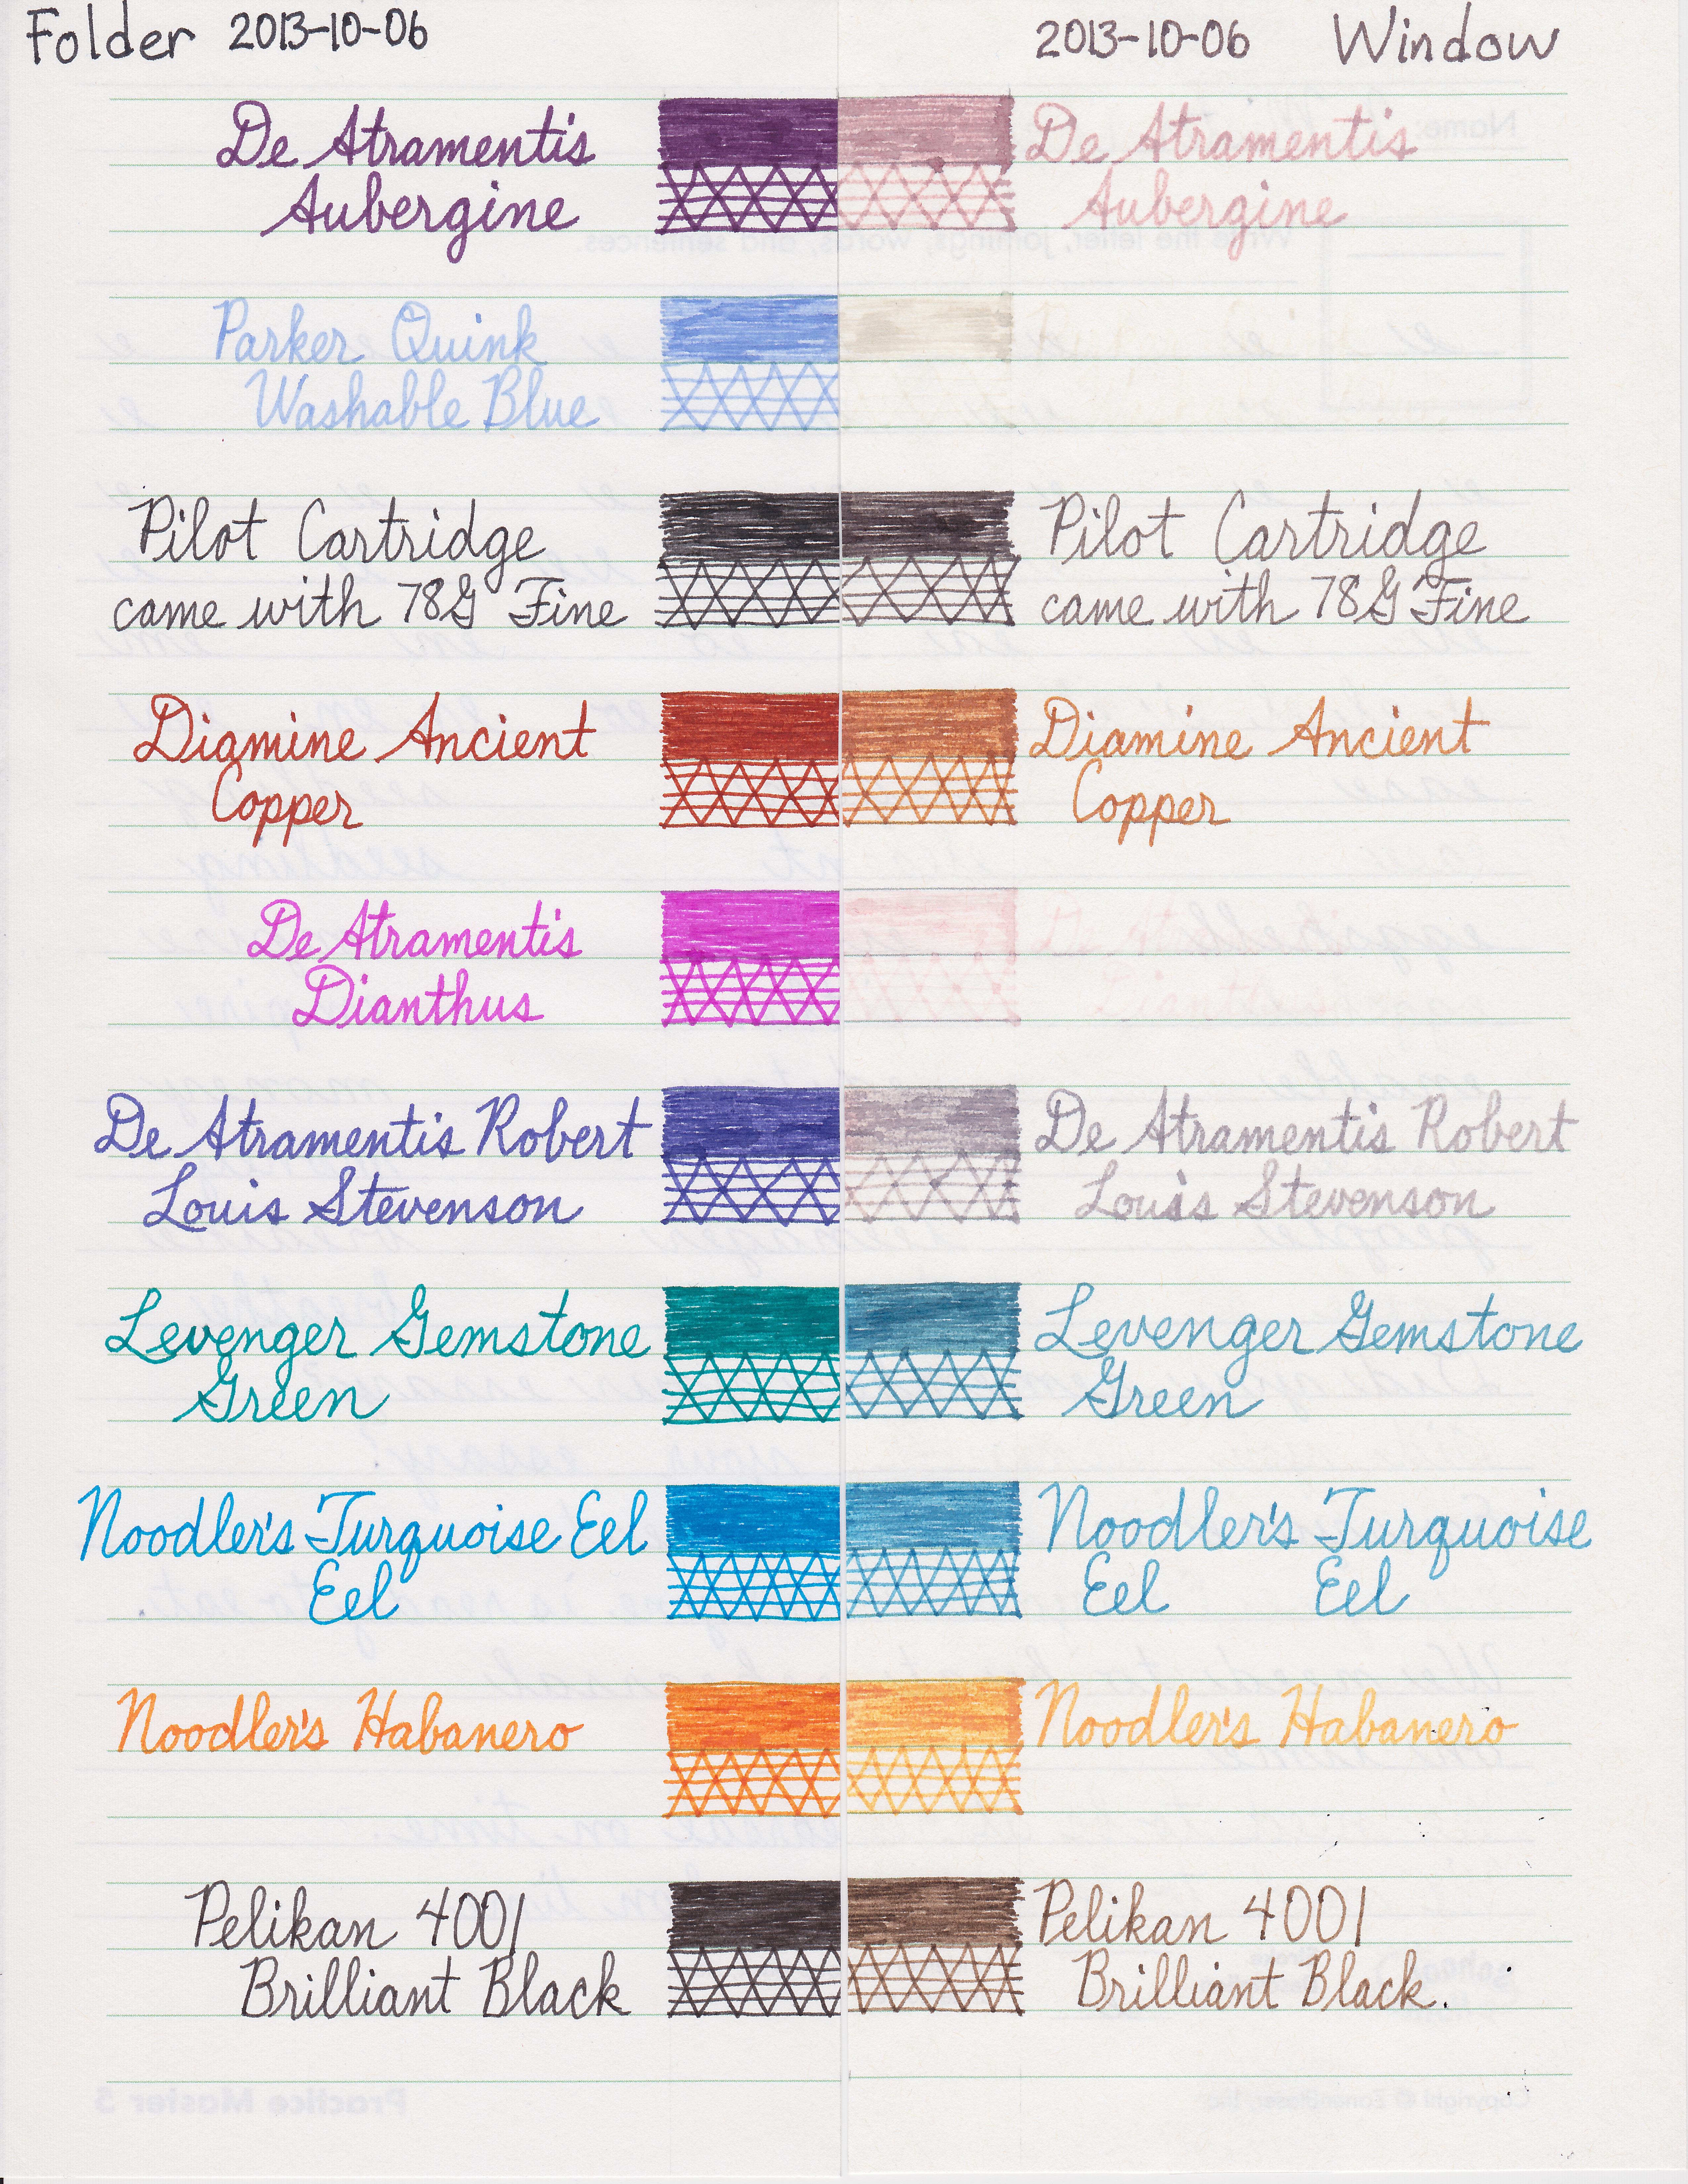 Folder 2013-10-06
De Atramentis
Aubergine
Parker Quink
Washable Blue
Pilot Cartridge
came with 78G Fine
Diamine Ancient
Copper
De Atramentis
Dianthus
De Atramentis Robert
Louis Stevenson
Levenger Gemstone
Green
Noodler's Turquoise Eel
Eel
Noodler's Habanero
Pelikan 4001
Brilliant Black
2013-10-06 Window
De Atramentis
Aubergine
Pilot Cartridge
came with 78G Fine
Diamine Ancient
Copper
De Atramentis
Dianthus
De Atramentis Robert
Louis Stevenson
Levenger Gemstone
Green
Noodler's Turquoise
Eel Eel
Noodler's Habanero
Pelikan 4001
Brilliant Black.